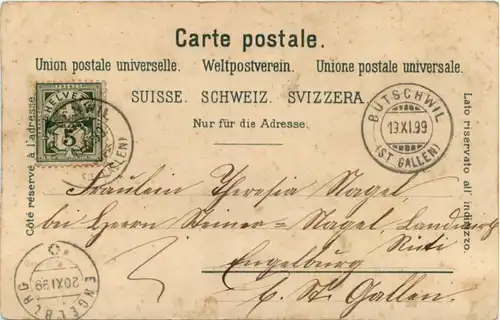 Carte postale.
Union postale universelle. Weltpostverein. Unione postale universale.
SUISSE. SCHWEIZ. SVIZZERA.
Nur für die Adresse.
Côté réservé à l'adresse.
Lato riservato all' indirizzo.
HELVETIA
5
WIL
GALLEN)
BÜTSCHWIL
13 XI.99
(ST GALLEN)
Fräulein Theresia Nagel
bei Herrn Steiner=Nagel,
Engelburg
Ct. St. Gallen.
ENGELBURG
20 XI 99